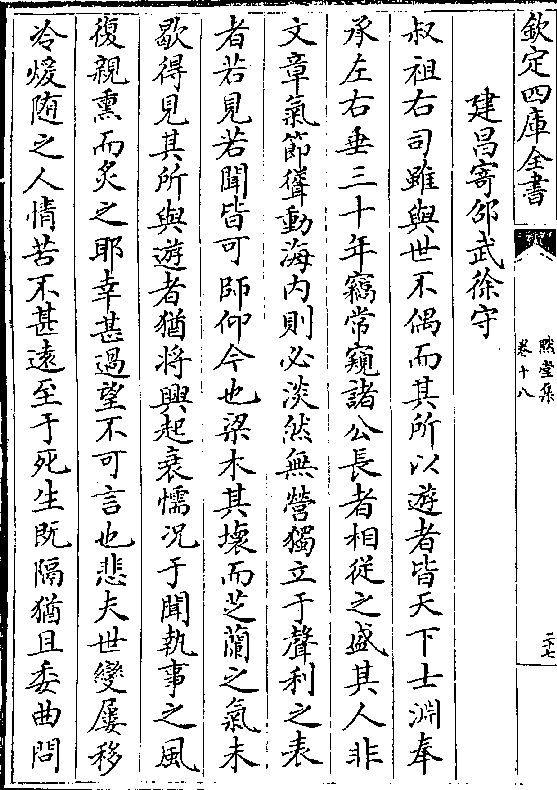 欽定四庫全書
䀲堂集
卷十八
二十七
建昌寄邵武徐守
叔祖右司雖與世不偶而其所以遊者皆天下士淵奉
承左右垂三十年竊常窺諸公長者相從之盛其人非
文章氣節聳動海内則必淡然無營獨立于聲利之表
者若見若聞皆可師仰今也梁木其壞而芝蘭之氣未
歇得見其所與遊者猶將興起衰懦况于聞執事之風
復親熏而炙之耶幸甚過望不可言也悲夫世變屢移
冷煖随之人情苦不甚逺至于死生既隔猶且委曲問